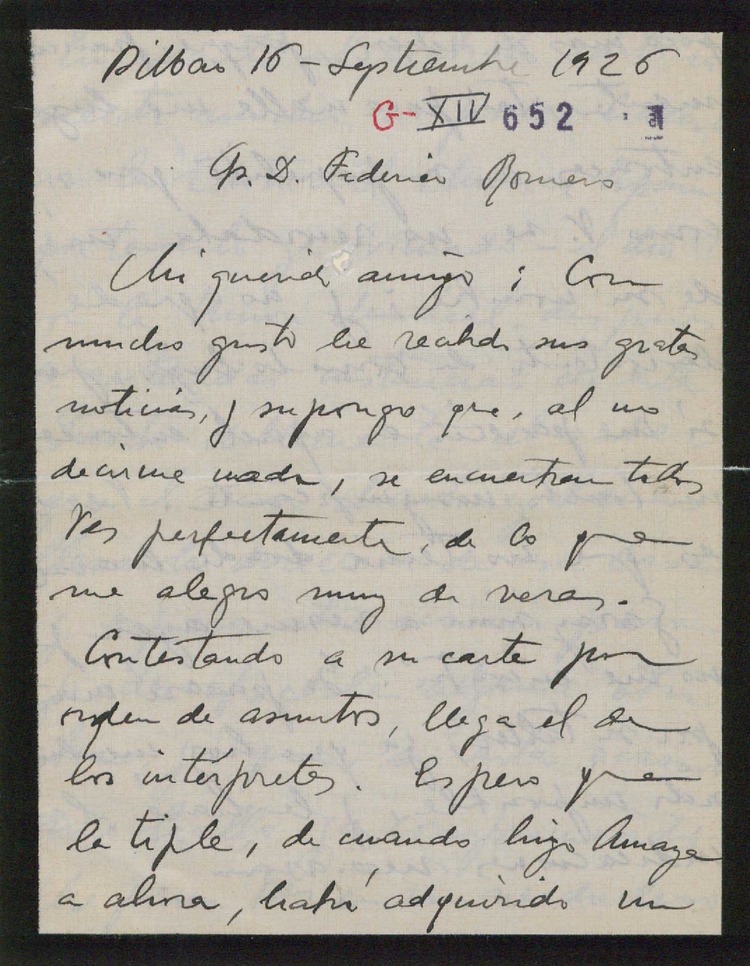 Bilbao 16 - Septiembre 1926
G- XIV 652 · 1
Sr. D. Federico Romero
Mi querido amigo: Con
mucho gusto he recibido sus gratas
noticias, y supongo que, al no
decirme nada, se encuentran todos
Vds perfectamente, de lo que
me alegro muy de veras.
Contestando a su carta por
orden de asuntos, llega el de
los intérpretes. Espero que
la tiple, de cuando hizo Amaya
a ahora, habrá adquirido un